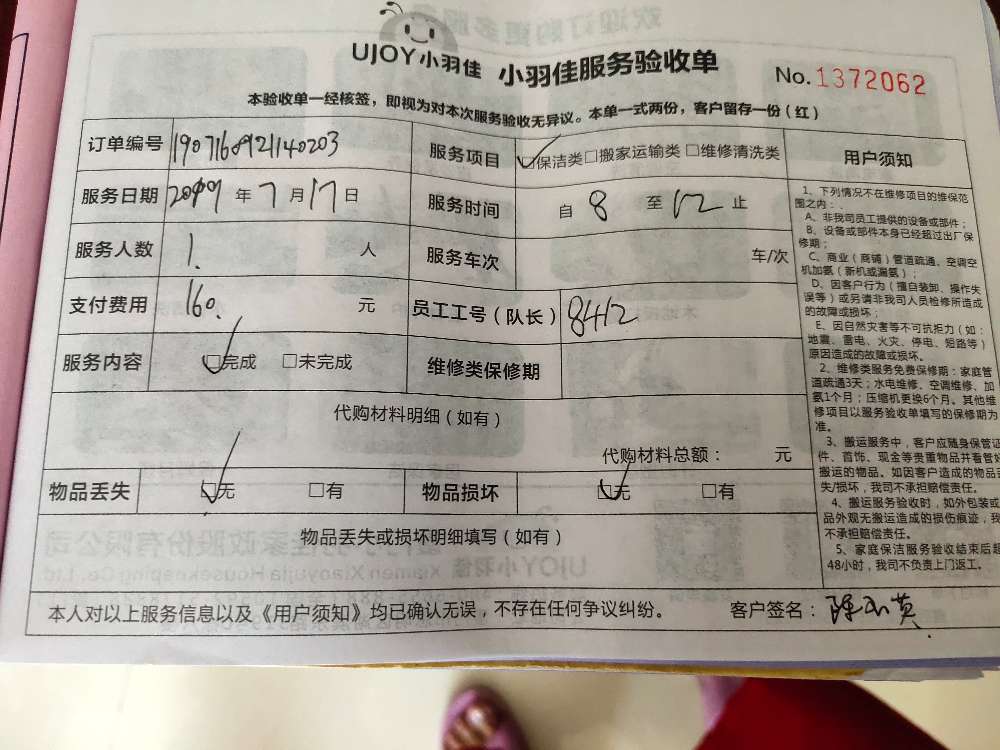 UJOY小羽佳 小羽佳服务验收单 No.1372062
本验收单一经核签，即视为对本次服务验收无异议。本单一式两份，客户留存一份（红）
订单编号 1907160921140203 服务项目 ☑保洁类□搬家运输类□维修清洗类
服务日期 2019年7月17日 服务时间 自8至12止
服务人数 1. 人 服务车次 车/次
支付费用 160. 元 员工工号（队长） 8412
服务内容 ☑完成 □未完成 维修类保修期
代购材料明细（如有）
代购材料总额： 元
物品丢失 ☑无 □有 物品损坏 ☑无 □有
物品丢失或损坏明细填写（如有）
本人对以上服务信息以及《用户须知》均已确认无误，不存在任何争议纠纷。 客户签名：
用户须知
1、下列情况不在维修项目的维保范
围之内：
A、非我司员工提供的设备或部件；
B、设备或部件本身已经超过出厂保
修期；
C、商业（商铺）管道疏通、空调空
机加氨（新机或漏氨）；
D、因客户行为（擅自装卸、操作失
误等）或另请非我司人员检修所造成
的故障或损坏；
E、因自然灾害等不可抗拒力（如：
地震、雷电、火灾、停电、短路等）
原因造成的故障或损坏。
2、维修类服务免费保修期：家庭管
道疏通3天；水电维修、空调维修、加
氨1个月；压缩机更换6个月。其他维
修项目以服务验收单填写的保修期为
准。
3、搬运服务中，客户应随身保管证
件、首饰、现金等贵重物品并看管好
搬运的物品。如因客户造成的物品丢
失/损坏，我司不承担赔偿责任。
4、搬运服务验收时，如外包装或
品外观无搬运造成的损伤痕迹，我
不承担赔偿责任。
5、家庭保洁服务验收结束后超
48小时，我司不负责上门返工。